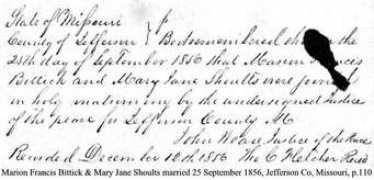 State of Missouri
County of Jefferson } Be it remembered the
25th day of September 1856 that Marion Francis
Bittick and Mary Jane Shoults were joined
in holy matrimony by the undersigned Justice
of the peace for Jefferson County Mo
John Justice of the Peace
Recorded December 12th 1856 Tho C Fletcher
Marion Francis Bittick & Mary Jane Shoults married 25 September 1856, Jefferson Co, Missouri, p.110